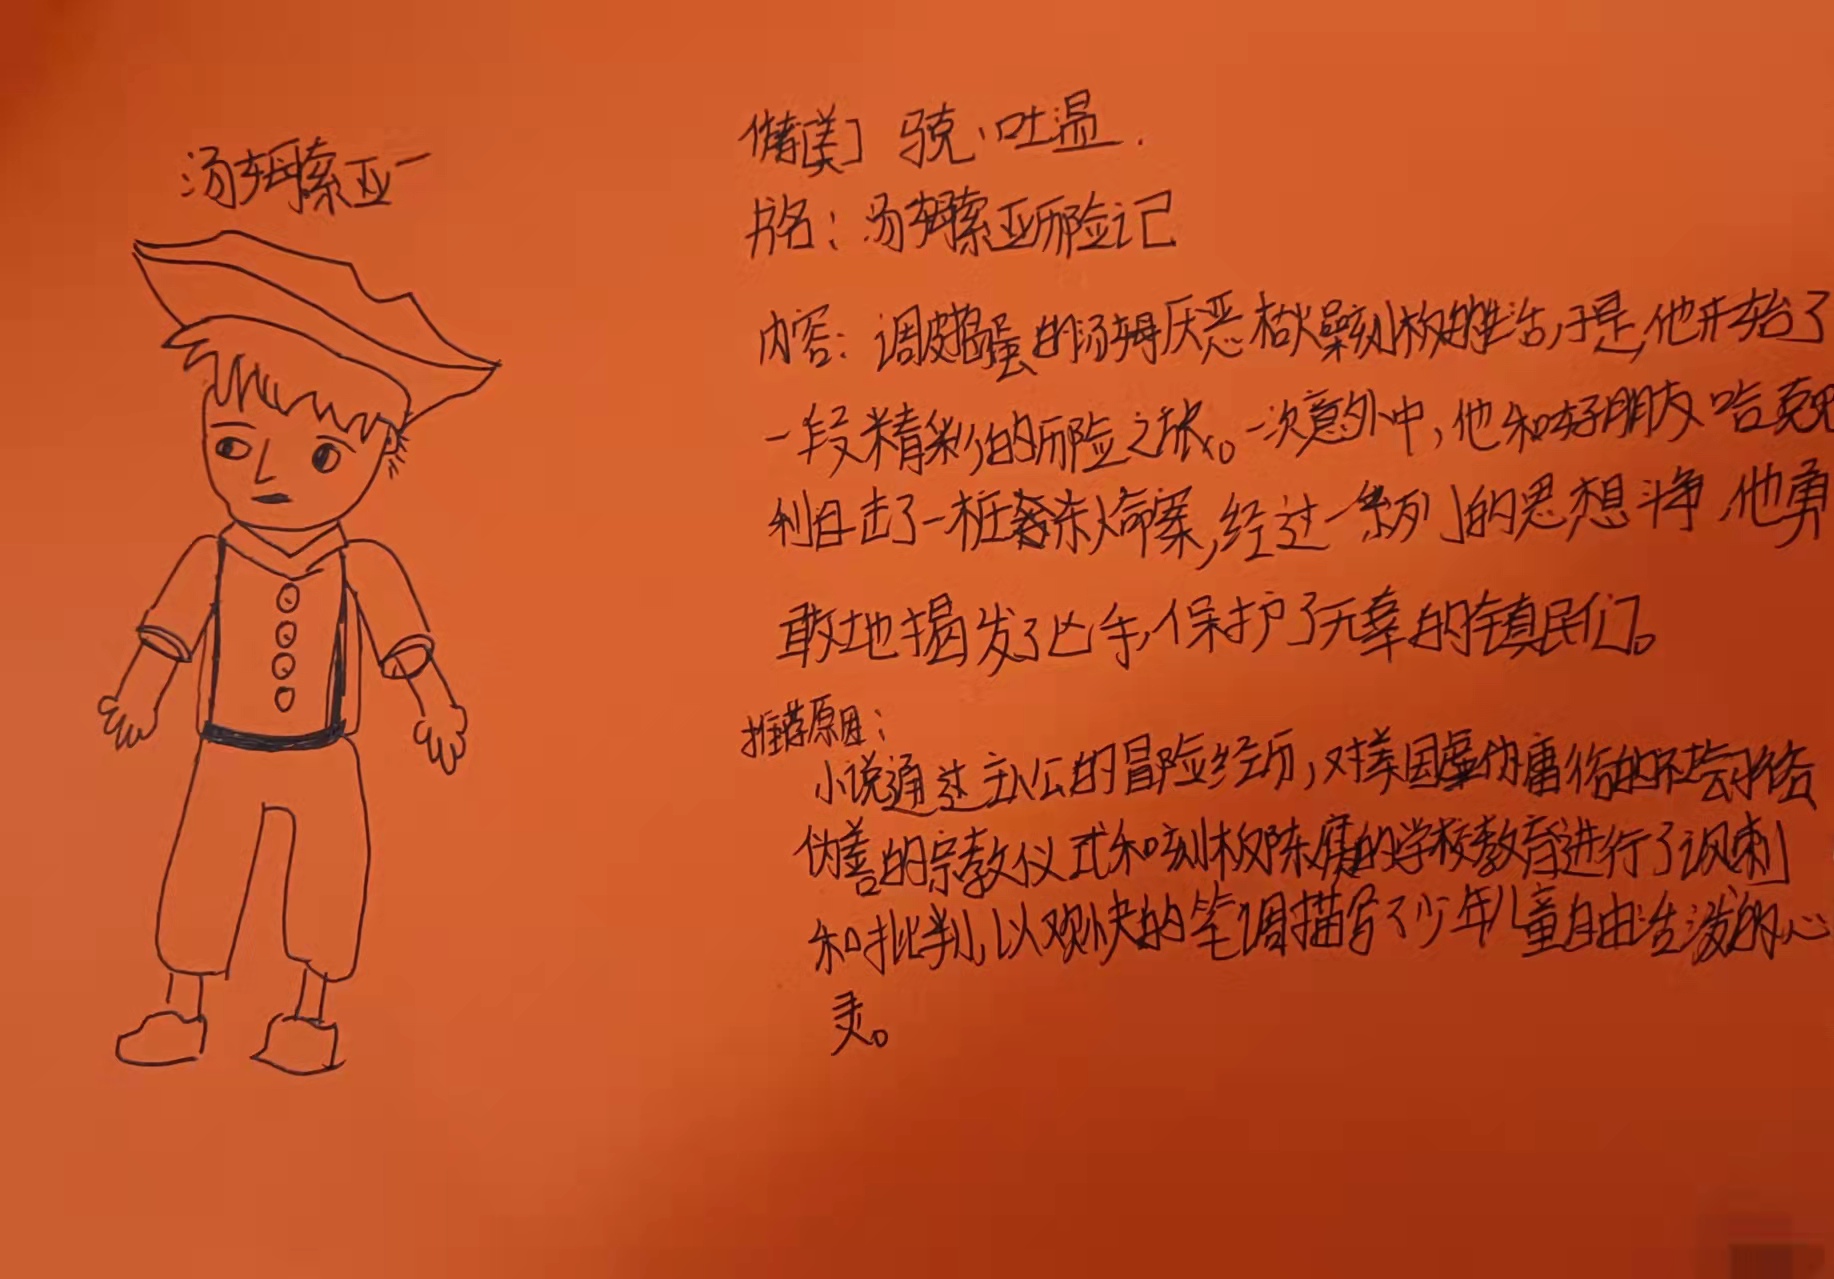 汤姆索亚
作者[美] 马克·吐温.
书名：汤姆索亚历险记
内容：调皮捣蛋的汤姆厌恶枯燥刻板的生活,于是,他开始了
一段精彩的历险之旅。一次意外中,他和好朋友哈克贝
利目击了一桩杀人命案,经过一系列的思想斗争,他勇
敢地揭发了凶手,保护了无辜的镇民们。
推荐原因：
小说通过主人公的冒险经历,对美国虚伪庸俗的社会习俗
伪善的宗教仪式和刻板陈腐的学校教育进行了讽刺
和批判,以欢快的笔调描写了少年儿童自由活泼的心
灵。